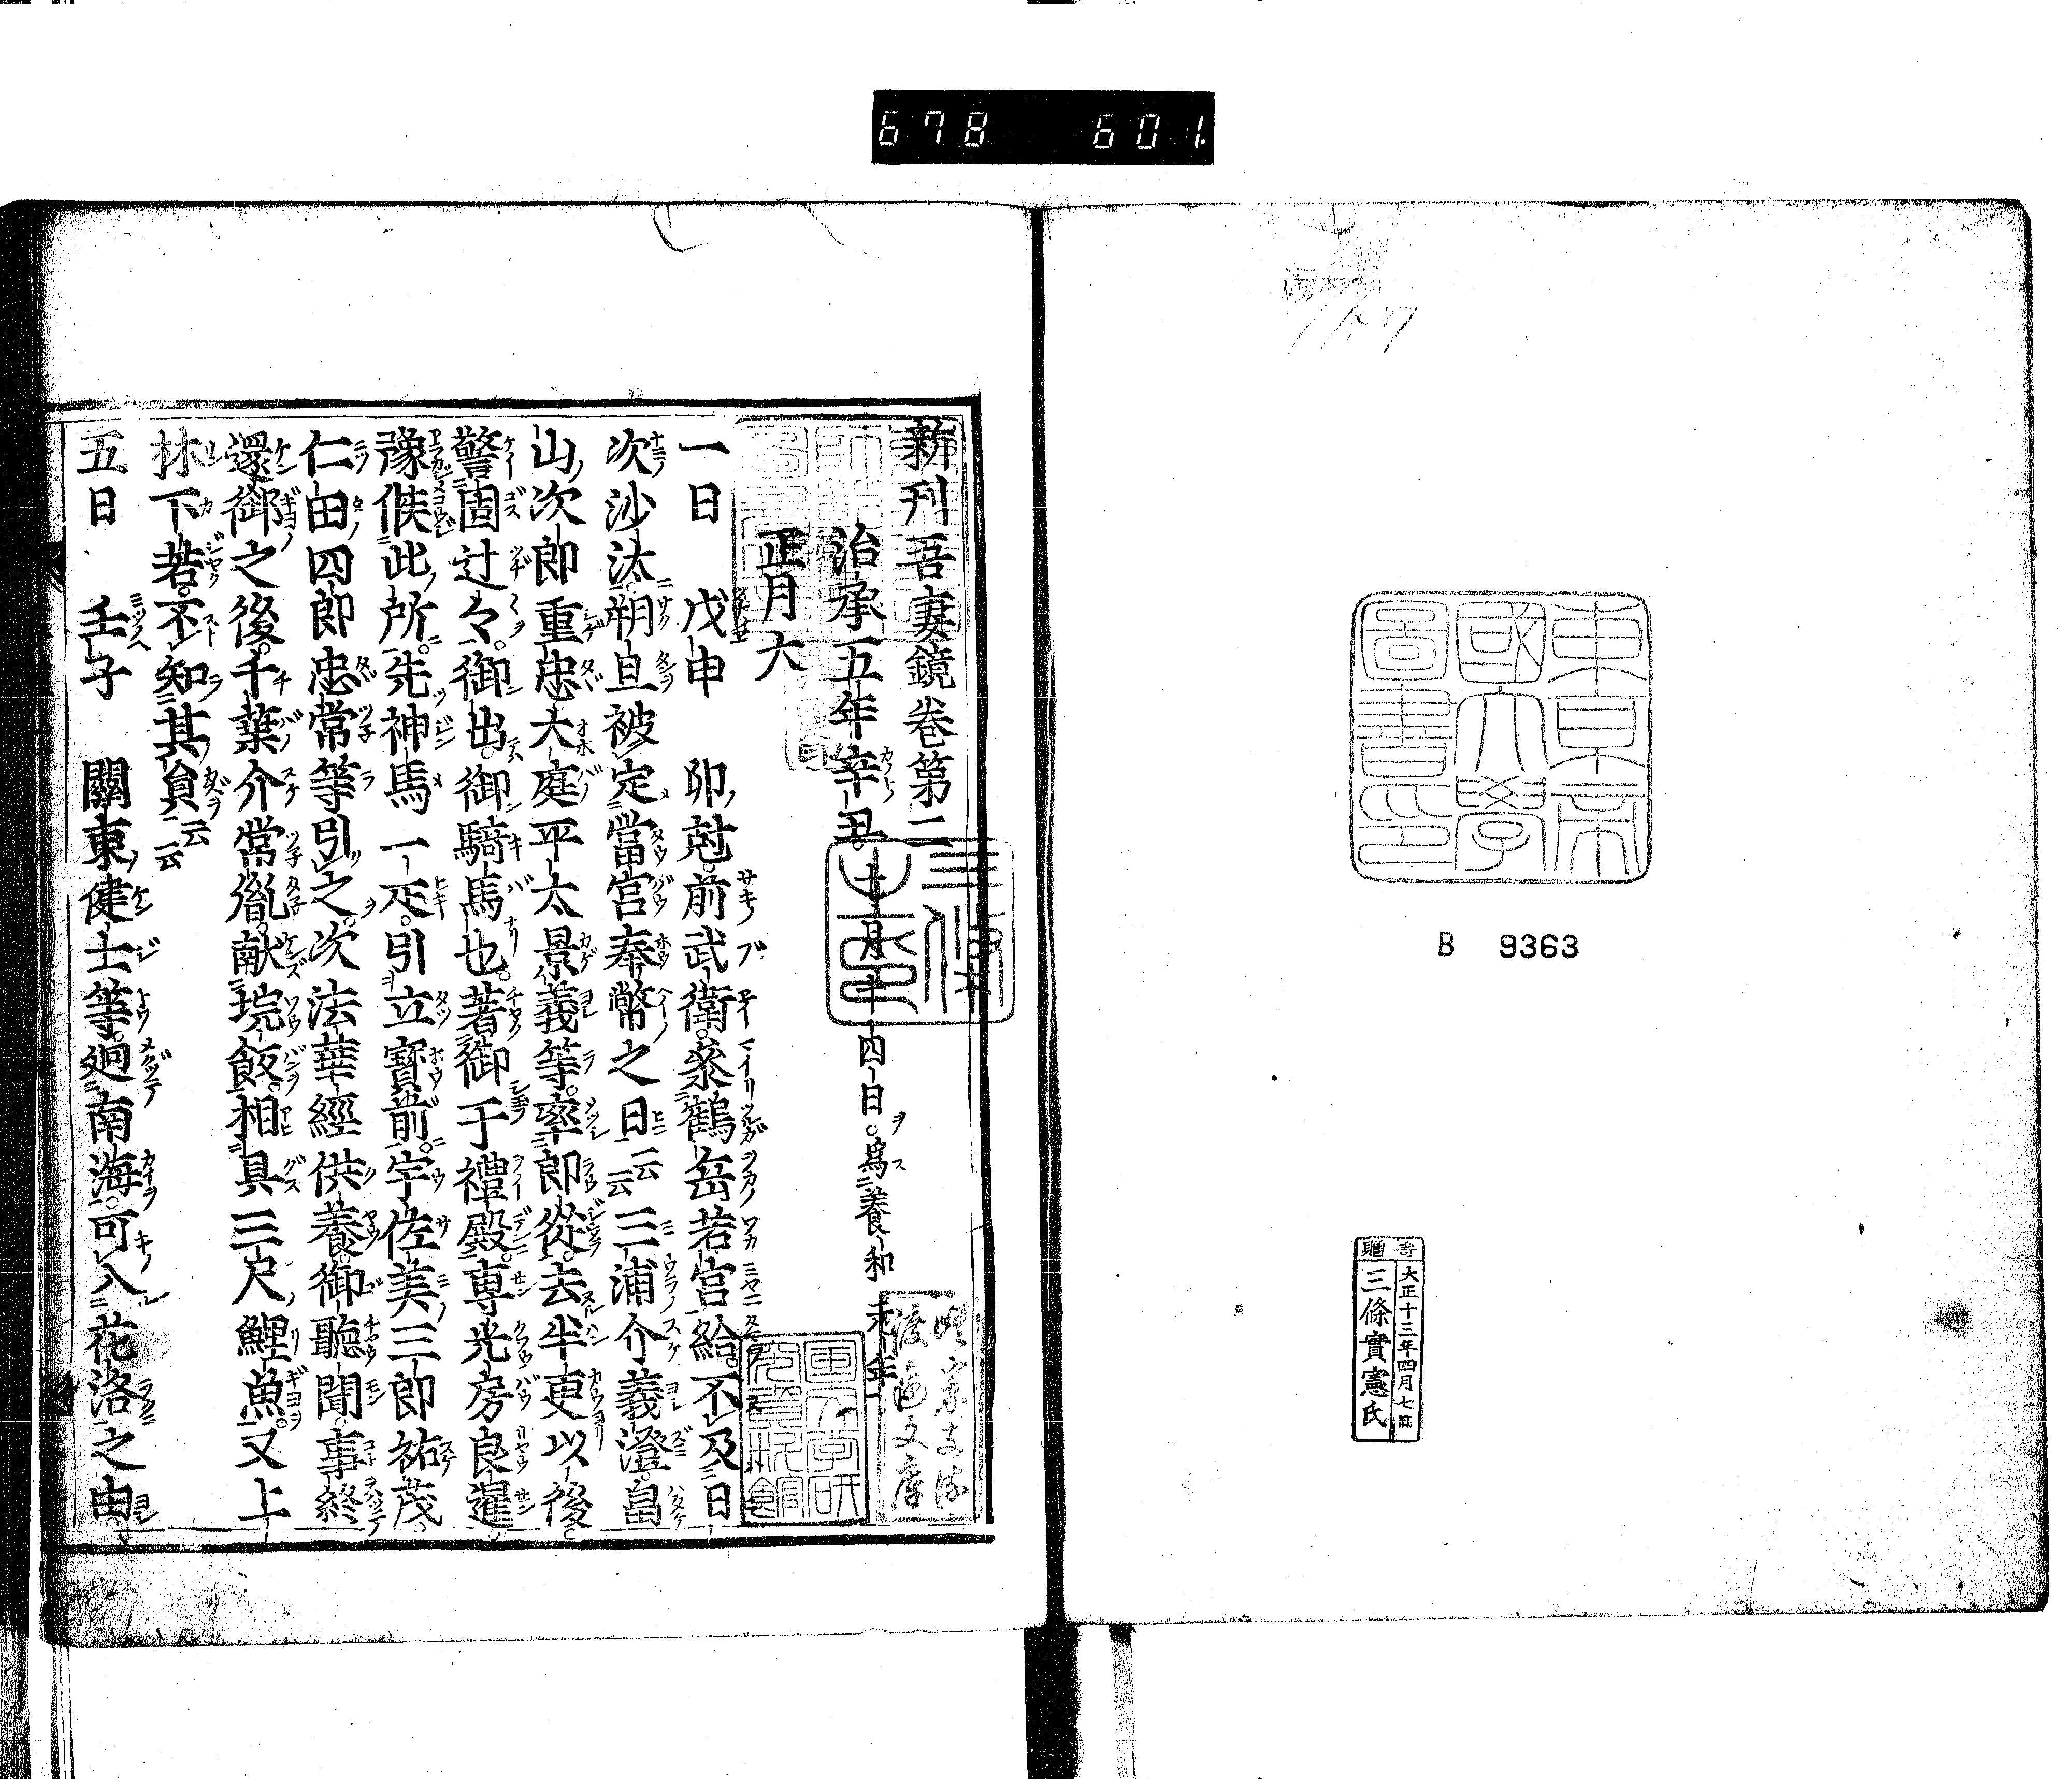 678 601.
東京帝
國大學
圖書印
B 9363
寄贈
大正十三年四月七日
三條實憲氏
新刊吾妻鏡卷第二
治承五年辛丑。七月十四日。爲養和元年
正月大
一日 戊申 卯尅。前武衛參鶴岳若宮給。不及日
次沙汰。朔旦被定當宮奉幣之日云云三浦介義澄。畠
山次郎重忠。大庭平太景義等。率郎從。去半更以後。
警固辻々。御出。御騎馬也。著御于禮殿。專光房良暹。
豫候此所。先神馬一疋。引立寶前。宇佐美三郎祐茂。
仁田四郎忠常等引之。次法華經供養。御聽聞。事終
還御之後。千葉介常胤。献垸飯。相具三尺鯉魚。又上
林下若。不知其員云云
五日 壬子 關東健士等。廻南海。可入花洛之由。